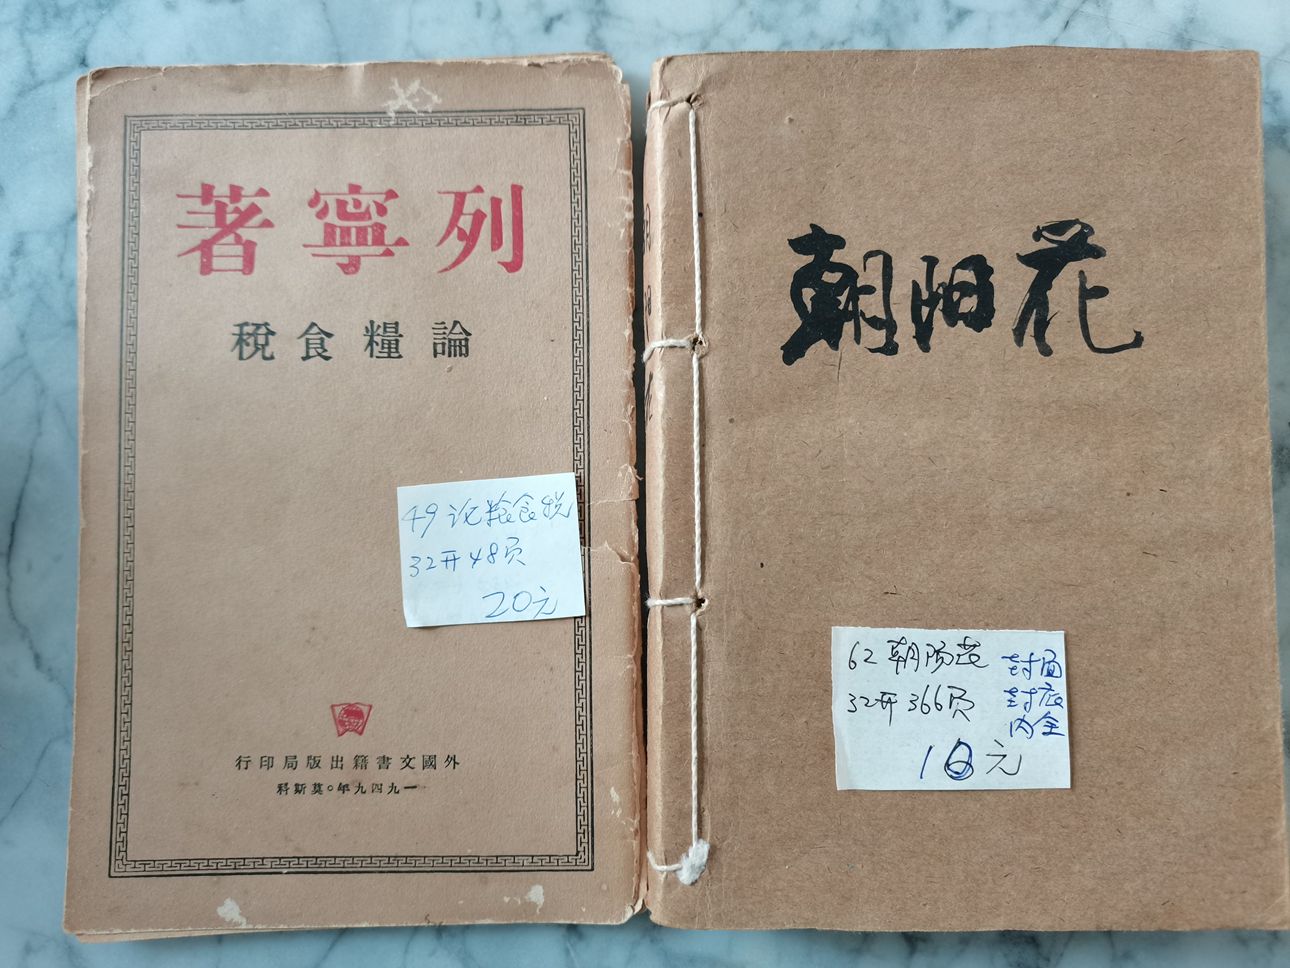 列寧著
論糧食稅
49 论粮食税
32开48页
20元
外國文書籍出版局印行
一九四九年○莫斯科
朝阳花
朝阳花
62 朝阳花
32开366页
封面
封底
内全
10元